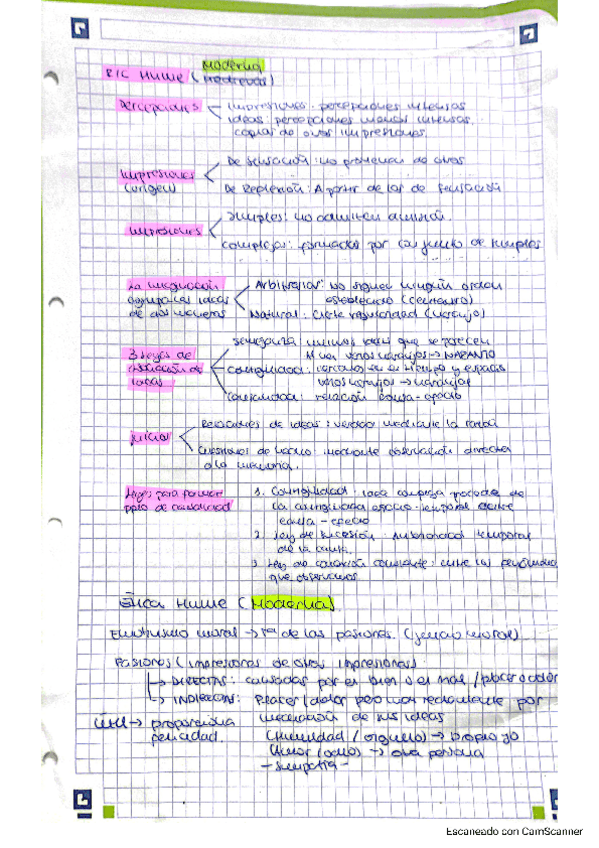 Moderna
R/C HUME (medieval)
Percepciones
impresiones: percepciones intensas
ideas: percepciones menos intensas.
copias de otras impresiones.
Impresiones
(origen)
De sensación: no provienen de otros
De Reflexión: A partir de las de sensación
impresiones
Simples: no admiten división.
complejas: formadas por conjunto de simples
La imaginación
ideas
de dos maneras
Arbitrarias: No siguen ningún orden
establecido (centauro)
Natural: Cierta regularidad (naranja)
3 leyes de
asociación de
ideas
semejanza unimos ideas que se parecen
naranjas → NARANJO
Contigüidad: en el tiempo y espacio
→ naranjas
Causalidad: relación causa-efecto
juicios
Relaciones de ideas: verdad mediante la razón
Cuestiones de hecho: mediante observación directa
o la memoria.
para formar
ppio de causalidad
1. Contigüidad: idea compleja
la contigüidad espacio-temporal entre
causa-efecto
2. Ley de sucesión: temporal
de la causa.
3. Ley de conexión constante: entre los fenómenos
que observamos
ÉTICA HUME (MODERNA)
Emotivismo moral → de las pasiones. (sentido moral)
Pasiones (impresiones de otras impresiones)
→ DIRECTAS: causadas por el bien o el mal / placer o dolor
→ INDIRECTAS: Placer/dolor pero por
de sus ideas
útil → proporciona
felicidad.
(humildad / orgullo) → propio yo
(Amor / odio) → otra persona
- simpatía -
Escaneado con CamScanner